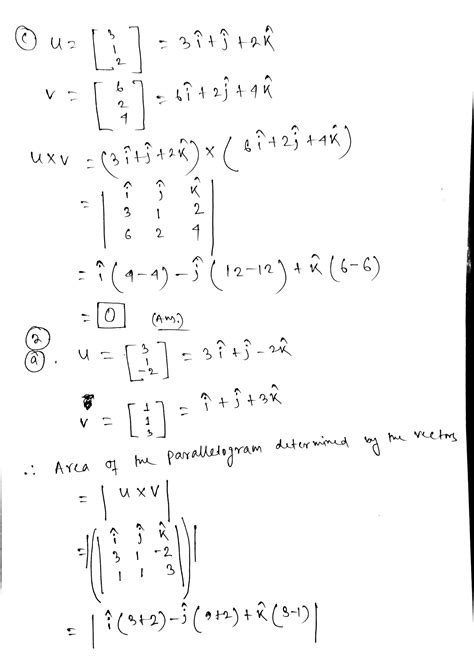 (c) u = [3 1 2] = 3î + ĵ + 2k̂
v = [6 2 4] = 6î + 2ĵ + 4k̂
u×v = (3î + ĵ + 2k̂) × (6î + 2ĵ + 4k̂)
= | î ĵ k̂ |
3 1 2
6 2 4
= î(4-4) - ĵ(12-12) + k̂(6-6)
= 0 (Ans.)
2
(a). u = [3 1 -2] = 3î + ĵ - 2k̂
v = [1 1 3] = î + ĵ + 3k̂
∴ Area of the parallelogram determined by the vectors
= | u×v |
= |( | î ĵ k̂ | )|
3 1 -2
1 1 3
= | î(3+2) - ĵ(9+2) + k̂(3-1) |